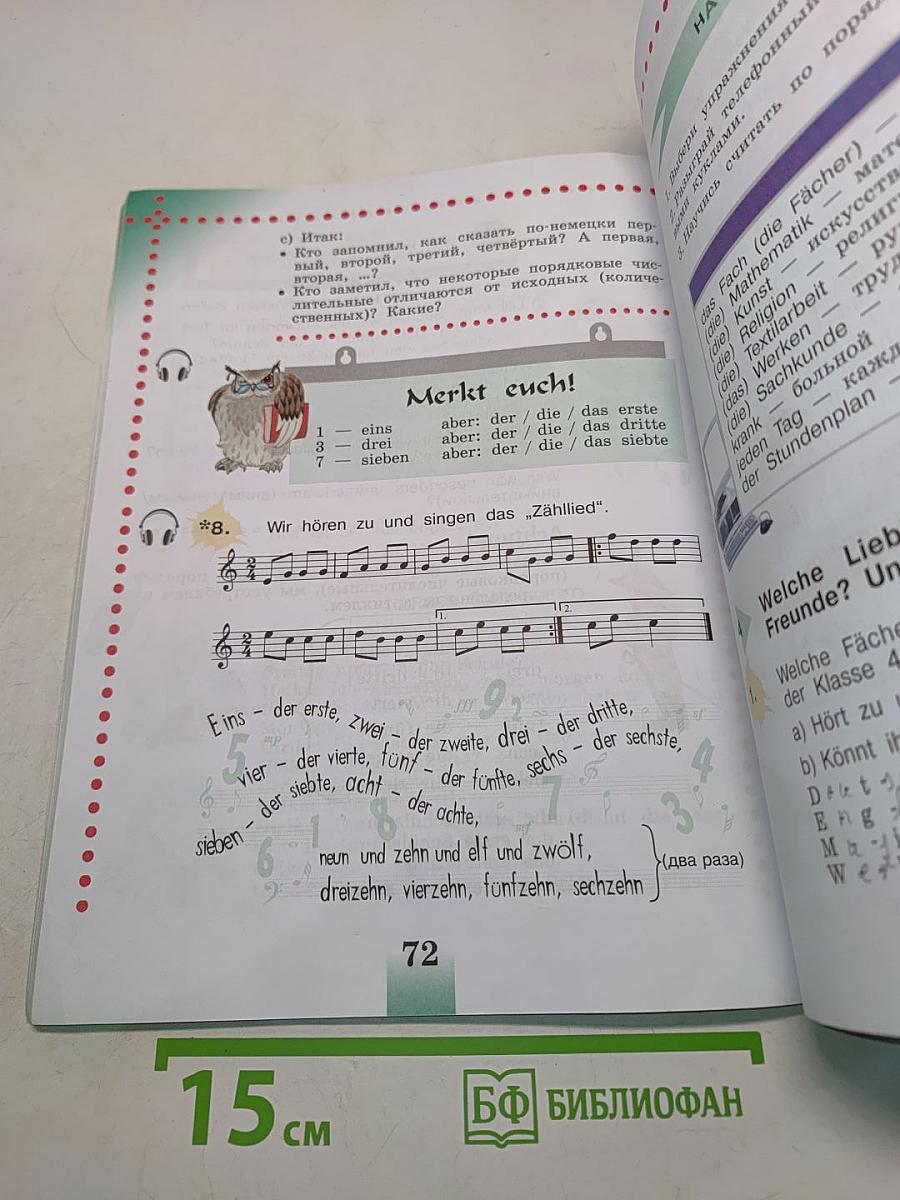 с) Итак:
• Кто запомнил, как сказать по-немецки пер-
вый, второй, третий, четвёртый? А первая,
вторая, ...?
• Кто заметил, что некоторые порядковые чис-
лительные отличаются от исходных (количе-
ственных)? Какие?
Merkt euch!
1 — eins aber: der / die / das erste
3 — drei aber: der / die / das dritte
7 — sieben aber: der / die / das siebte
*8. Wir hören zu und singen das „Zähllied“.
2/4
2/4 1. 2.
Eins – der erste, zwei – der zweite, drei – der dritte,
vier – der vierte, fünf – der fünfte, sechs – der sechste,
sieben – der siebte, acht – der achte,
neun und zehn und elf und zwölf,
dreizehn, vierzehn, fünfzehn, sechzehn
(два раза)
9 2 5 4 7 3 8 1 6
72
НА
1. Выбери упражнения
2. Разыграй телефонный
выми куклами.
3. Научись считать по
das Fach (die Fächer) —
(die) Mathematik —
(die) Kunst —
(die) Religion —
(die) Textilarbeit —
(das) Werken —
(die) Sachkunde —
krank — больной
jeden Tag —
der Stundenplan —
Welche
Freunde?
1. Welche
der Klasse 4
a) Hört zu
b) Könnt
D
E n g
M
W
15 см
БФ БИБЛИОФАН